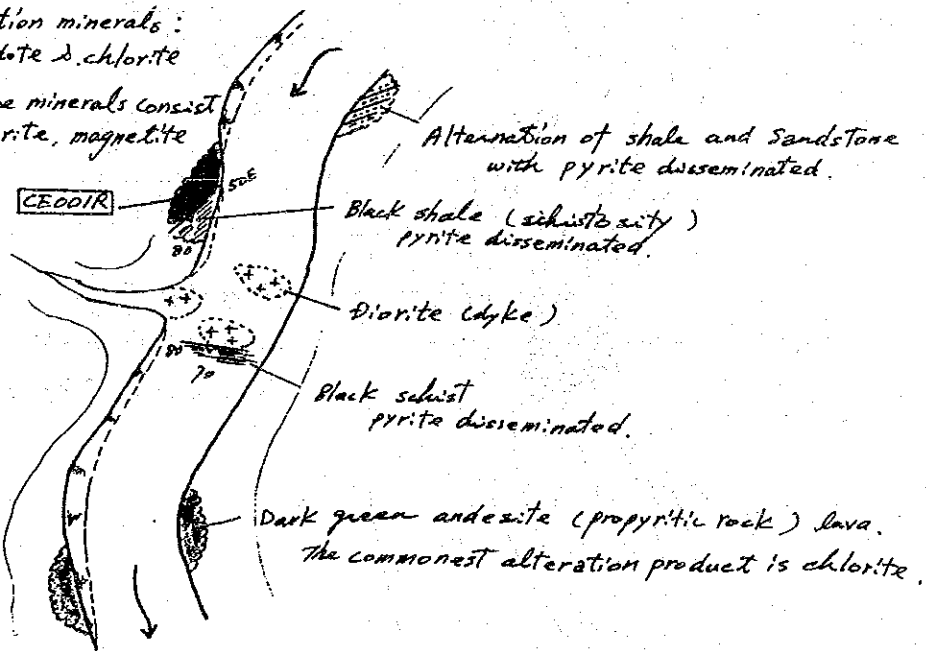 tion minerals :
dote & chlorite
e minerals consist
rite, magnetite
Alternation of shale and Sandstone
with pyrite disseminated.
CE001R
50E
Black shale (schistosity)
pyrite disseminated.
80
Diorite (dyke)
80
70
Black schist
pyrite disseminated.
Dark green andesite (propyritic rock) lava.
The commonest alteration product is chlorite.